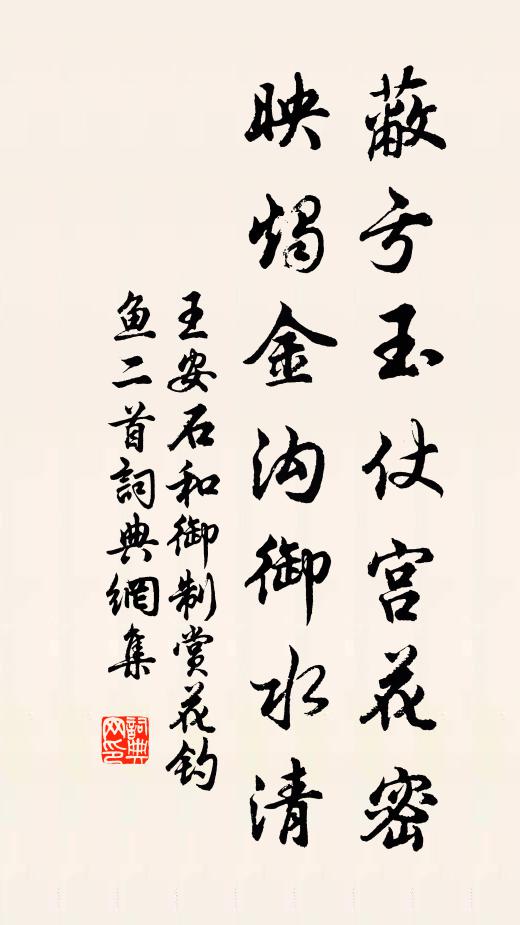 蔽亏玉仗宫花密
映烛金沟御水清
王安石和御制赏花钓
鱼二首詞典網集
詞典网印